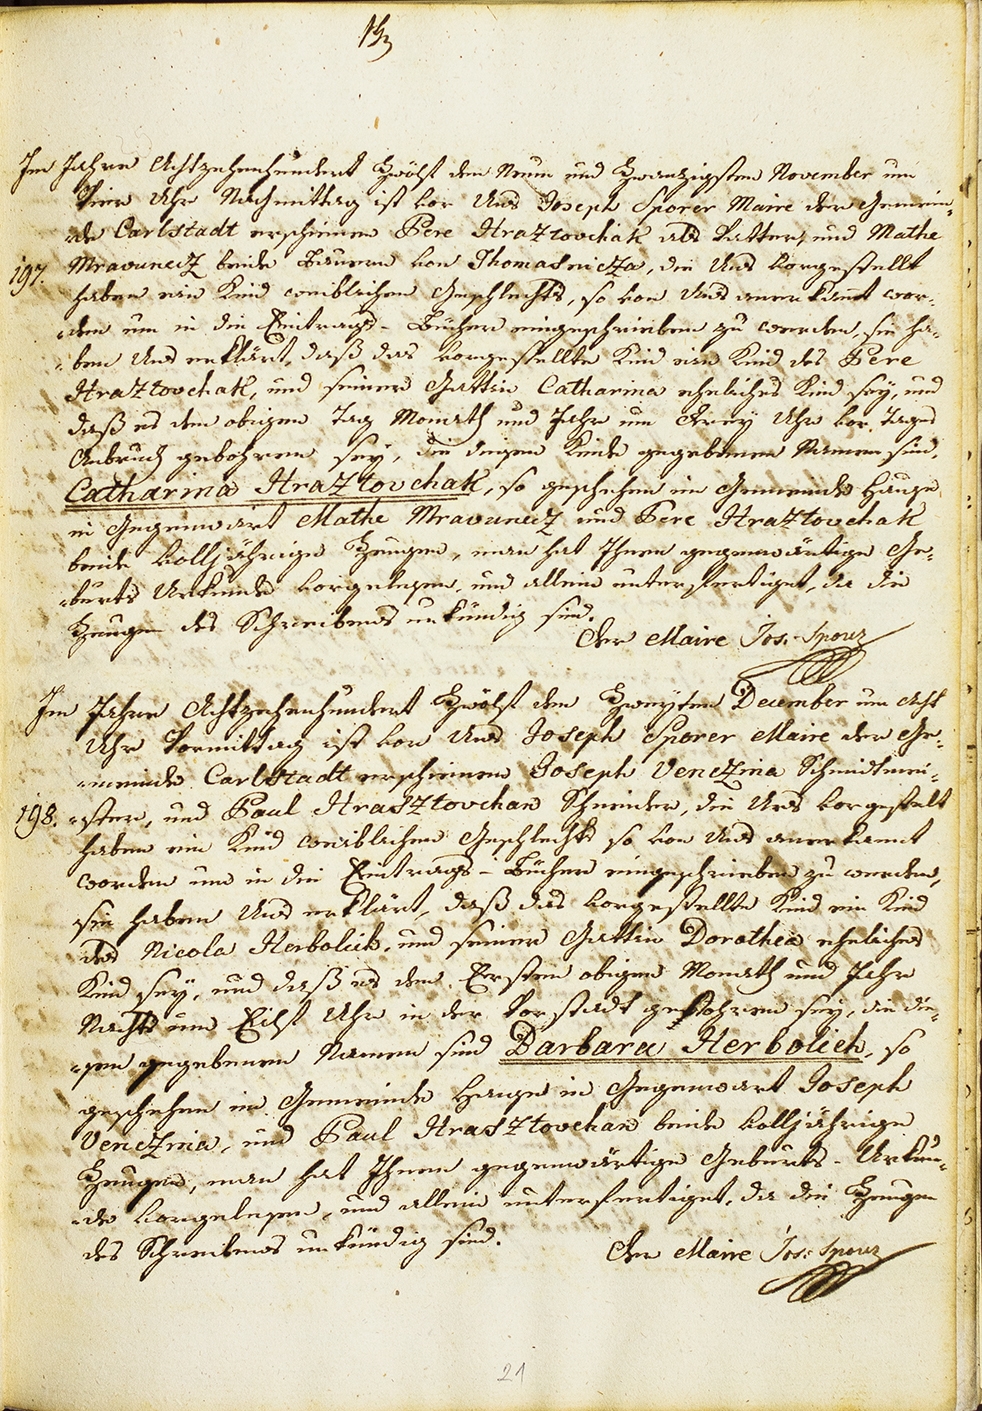 Im Jahre Achtzehenhundert Zwölf den Neun und Zwanzigsten November um
Vier Uhr Nachmittag ist vor Uns Joseph Sporer Maire der Gemein-
de Carlstadt erschienen Pere Hraztovchak als Vatter, und Mathe
197. Mravunecz beide Bauern von Thomasnicza, die Uns vorgestellt
haben ein Kind weiblichen Geschlechts, so von Uns anerkannt wor-
den um in die Eintrags-Bücher eingeschrieben zu werden, sie ha-
ben Uns erklärt, daß das vorgestellte Kind ein Kind des Pere
Hraztovchak, und seiner Gattin Catharina eheliches Kind sey, und
daß es den obigen Tag Monath und Jahr um Drey Uhr vor Tages
Anbruch gebohren sey, die diesem Kinde gegebenen Namen sind,
Catharina Hraztovchak, so geschehen im Gemeinde Hause
in Gegenwart Mathe Mravunecz und Pere Hraztovchak
beide volljährige Zeugen, man hat Ihnen gegenwärtige Ge-
burts Urkunde vorgelesen, und allein unterfertiget, da die
Zeugen des Schreibens unkündig sind.
Der Maire Jos. Sporer
Im Jahre Achtzehenhundert Zwölf den Zweyten December um Acht
Uhr Vormittag ist vor Uns Joseph Sporer Maire der Ge-
meinde Carlstadt erschienen Joseph Venczina Schmidtmei-
198. ster, und Paul Hrasztovchan Schneider, die Uns vorgestelt
haben ein Kind weiblichen Geschlechts so von Uns anerkannt
worden um in die Eintrags-Bücher eingeschrieben zu werden,
sie haben Uns erklärt, daß das vorgestellte Kind ein Kind
des Nicola Herbolich, und seiner Gattin Dorothea eheliches
Kind sey, und daß es den Ersten obigen Monath und Jahr
Nachts um Eilf Uhr in der Vorstadt gebohren sey, die die-
sem gegebenen Namen sind Barbara Herbolich, so
geschehen im Gemeinde Hause in Gegenwart Joseph
Venczina, und Paul Hrasztovchan beide volljährige
Zeugen, man hat Ihnen gegenwärtige Geburts-Urkun-
de vorgelesen, und allein unterfertiget, da die Zeugen
des Schreibens unkündig sind.
Der Maire Jos: Sporer
21